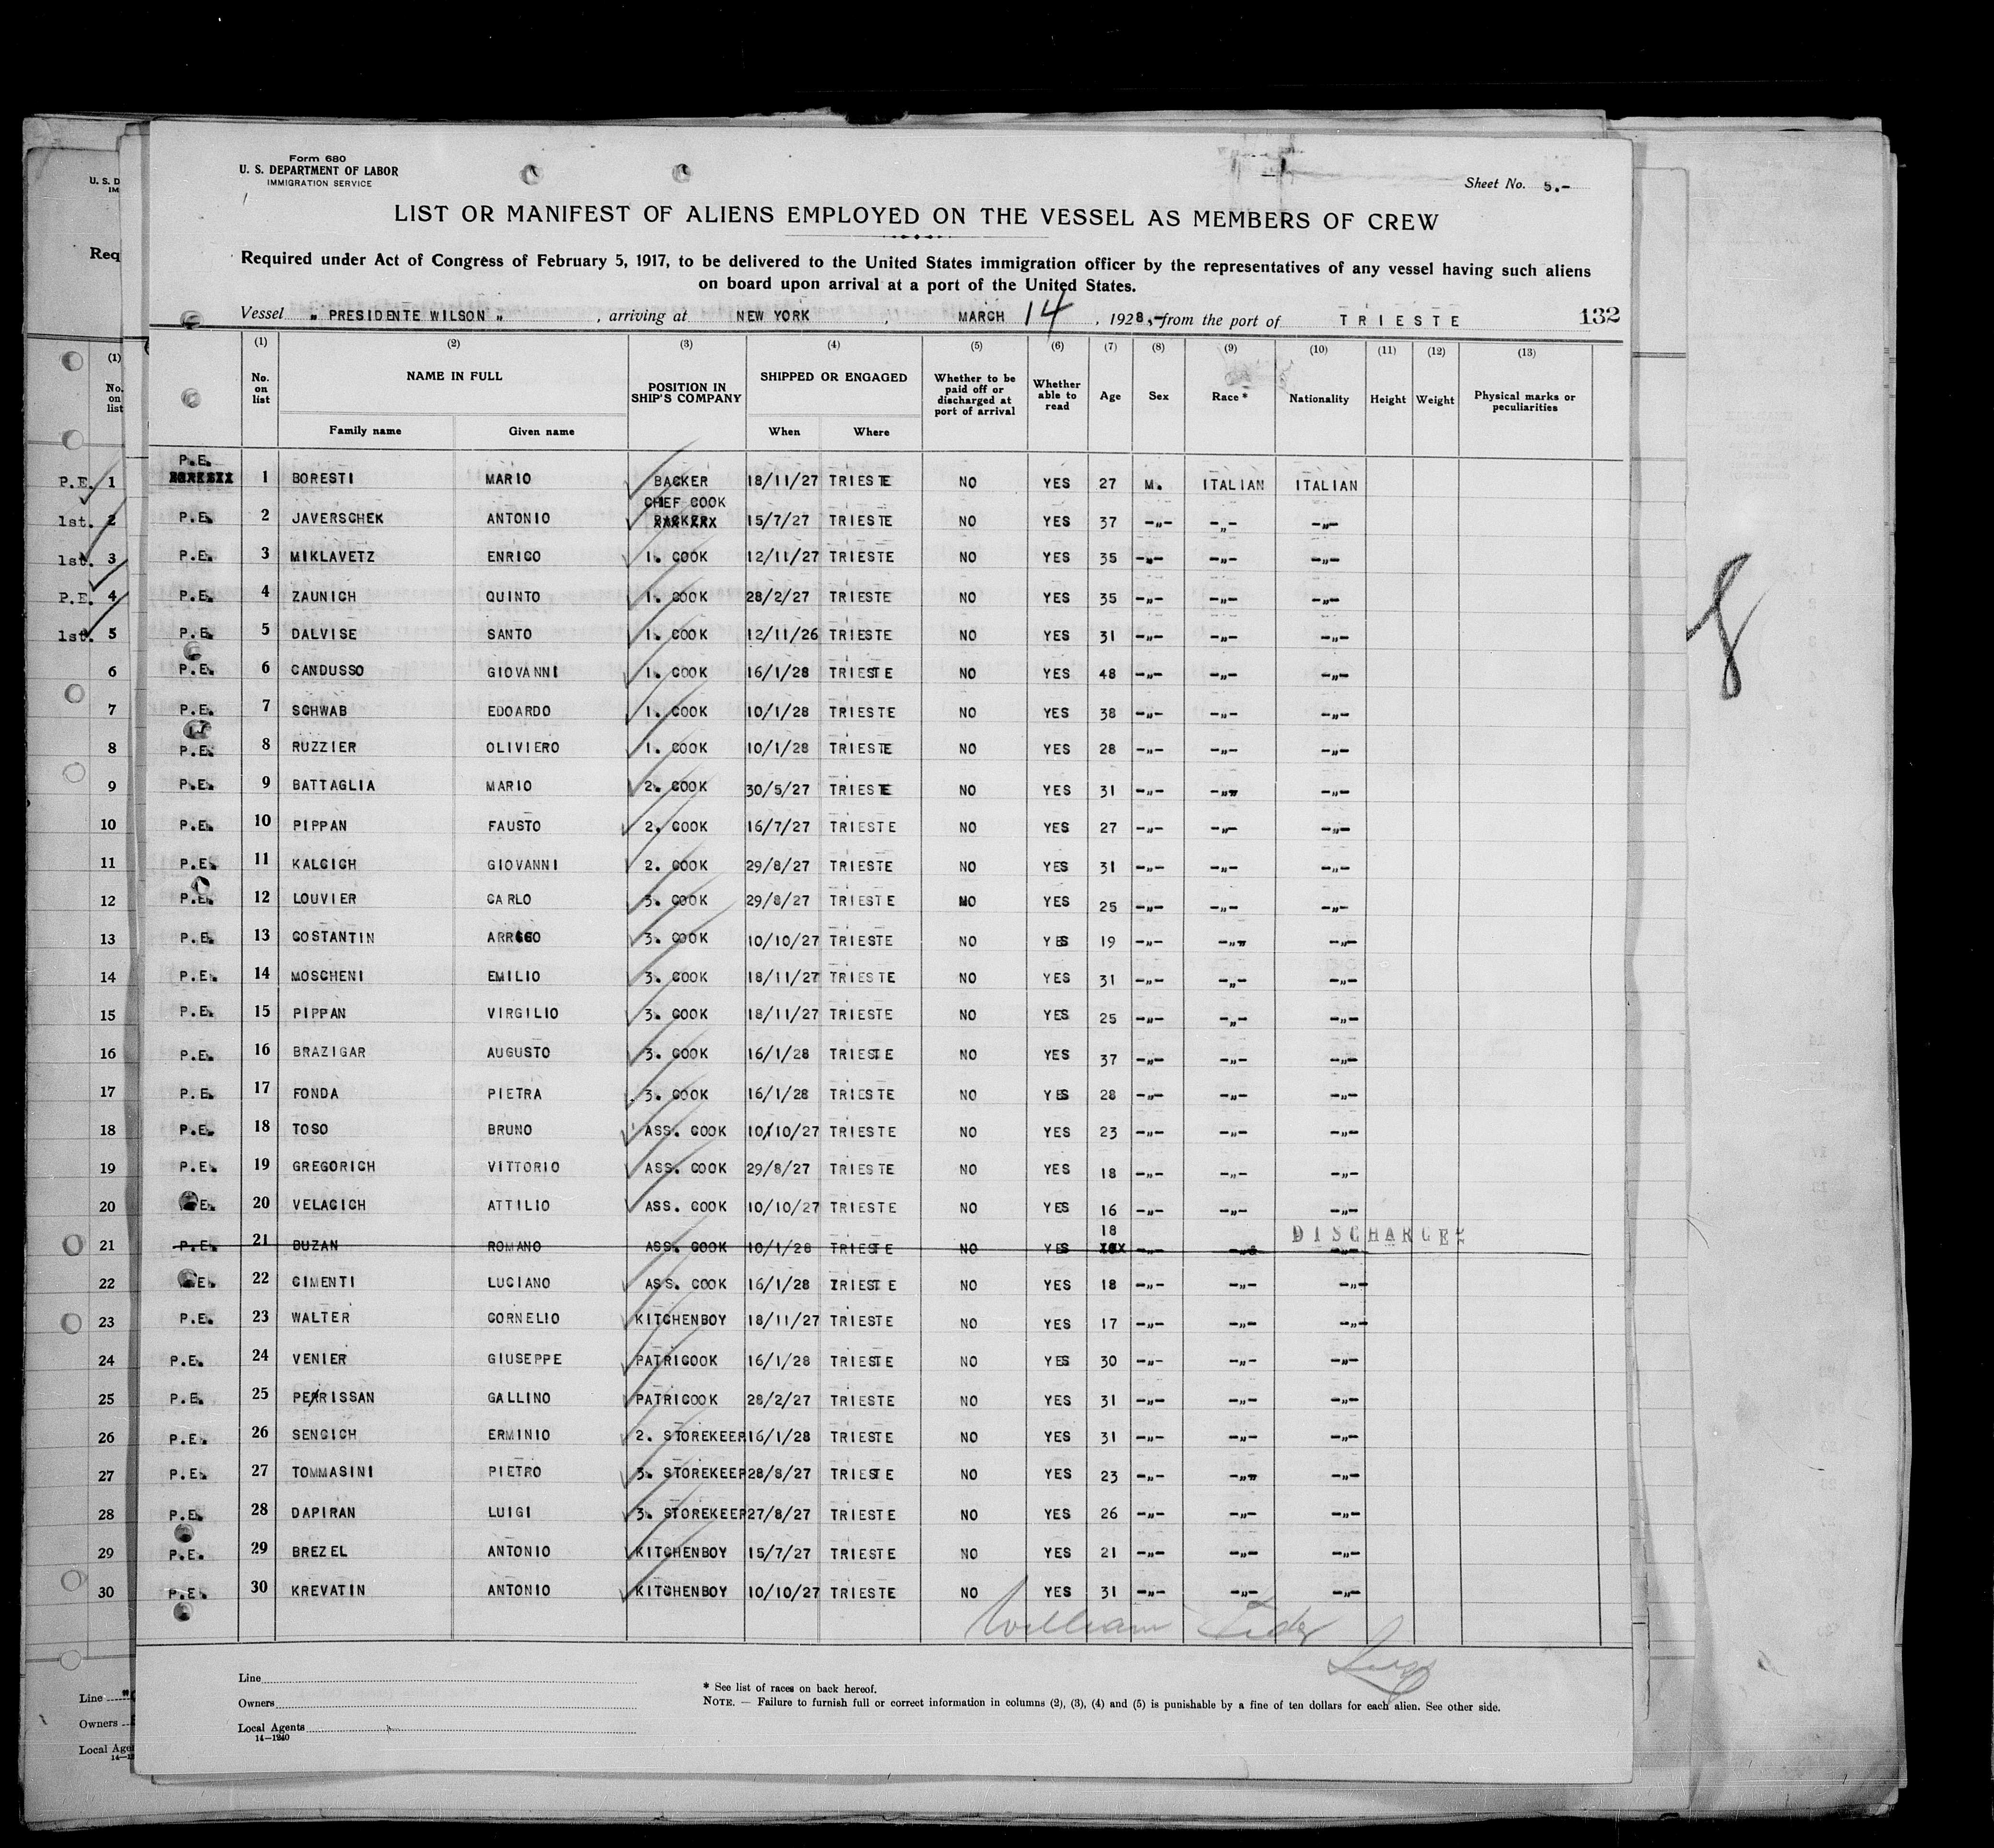 Form 680
U. S. DEPARTMENT OF LABOR
IMMIGRATION SERVICE
Sheet No. 5.-
LIST OR MANIFEST OF ALIENS EMPLOYED ON THE VESSEL AS MEMBERS OF CREW
Required under Act of Congress of February 5, 1917, to be delivered to the United States immigration officer by the representatives of any vessel having such aliens
on board upon arrival at a port of the United States.
Vessel „ PRESIDENTE WILSON „ , arriving at NEW YORK , MARCH 14 , 1928,- from the port of TRIESTE 132
(1) (2) (3) (4) (5) (6) (7) (8) (9) (10) (11) (12) (13)
No. on list NAME IN FULL POSITION IN SHIP'S COMPANY SHIPPED OR ENGAGED Whether to be paid off or discharged at port of arrival Whether able to read Age Sex Race * Nationality Height Weight Physical marks or peculiarities
Family name Given name When Where
P.E. 1 BORESTI MARIO BACKER 18/11/27 TRIESTE NO YES 27 M. ITALIAN ITALIAN
P.E. 2 JAVERSCHEK ANTONIO CHIEF COOK 15/7/27 TRIESTE NO YES 37 -„- -„- -„-
P.E. 3 MIKLAVETZ ENRICO 1. COOK 12/11/27 TRIESTE NO YES 35 -„- -„- -„-
P.E. 4 ZAUNICH QUINTO 1. COOK 28/2/27 TRIESTE NO YES 35 -„- -„- -„-
P.E. 5 DALVISE SANTO 1. COOK 12/11/26 TRIESTE NO YES 31 -„- -„- -„-
P.E. 6 CANDUSSO GIOVANNI 1. COOK 16/1/28 TRIESTE NO YES 48 -„- -„- -„-
P.E. 7 SCHWAB EDOARDO 1. COOK 10/1/28 TRIESTE NO YES 38 -„- -„- -„-
P.E. 8 RUZZIER OLIVIERO 1. COOK 10/1/28 TRIESTE NO YES 28 -„- -„- -„-
P.E. 9 BATTAGLIA MARIO 2. COOK 30/5/27 TRIESTE NO YES 31 -„- -„- -„-
P.E. 10 PIPPAN FAUSTO 2. COOK 16/7/27 TRIESTE NO YES 27 -„- -„- -„-
P.E. 11 KALCICH GIOVANNI 2. COOK 29/8/27 TRIESTE NO YES 31 -„- -„- -„-
P.E. 12 LOUVIER CARLO 3. COOK 29/8/27 TRIESTE NO YES 25 -„- -„- -„-
P.E. 13 COSTANTIN 3. COOK 10/10/27 TRIESTE NO YES 19 -„- -„- -„-
P.E. 14 MOSCHENI EMILIO 3. COOK 18/11/27 TRIESTE NO YES 31 -„- -„- -„-
P.E. 15 PIPPAN VIRGILIO 3. COOK 18/11/27 TRIESTE NO YES 25 -„- -„- -„-
P.E. 16 BRAZIGAR AUGUSTO 3. COOK 16/1/28 TRIESTE NO YES 37 -„- -„- -„-
P.E. 17 FONDA PIETRA 3. COOK 16/1/28 TRIESTE NO YES 28 -„- -„- -„-
P.E. 18 TOSO BRUNO ASS. COOK 10/10/27 TRIESTE NO YES 23 -„- -„- -„-
P.E. 19 GREGORICH VITTORIO ASS. COOK 29/8/27 TRIESTE NO YES 18 -„- -„- -„-
E. 20 VELACICH ATTILIO ASS. COOK 10/10/27 TRIESTE NO YES 16 -„- -„- -„-
P.E. 21 BUZAN ROMANO ASS. COOK 10/1/28 TRIESTE NO YES 18 -„- -„- -„- DISCHARGED
E. 22 CIMENTI LUCIANO ASS. COOK 16/1/28 TRIESTE NO YES 18 -„- -„- -„-
P.E. 23 WALTER CORNELIO KITCHENBOY 18/11/27 TRIESTE NO YES 17 -„- -„- -„-
P.E. 24 VENIER GIUSEPPE PATRICOOK 16/1/28 TRIESTE NO YES 30 -„- -„- -„-
P.E. 25 PERRISSAN GALLINO PATRICOOK 28/2/27 TRIESTE NO YES 31 -„- -„- -„-
P.E. 26 SENCICH ERMINIO 2. STOREKEEP 16/1/28 TRIESTE NO YES 31 -„- -„- -„-
P.E. 27 TOMMASINI PIETRO 3. STOREKEEP 28/8/27 TRIESTE NO YES 23 -„- -„- -„-
P.E. 28 DAPIRAN LUIGI 3. STOREKEEP 27/8/27 TRIESTE NO YES 26 -„- -„- -„-
P.E. 29 BREZEL ANTONIO KITCHENBOY 15/7/27 TRIESTE NO YES 21 -„- -„- -„-
P.E. 30 KREVATIN ANTONIO KITCHENBOY 10/10/27 TRIESTE NO YES 31 -„- -„- -„-
William
Line
Owners
Local Agents
14—1240
* See list of races on back hereof.
NOTE. — Failure to furnish full or correct information in columns (2), (3), (4) and (5) is punishable by a fine of ten dollars for each alien. See other side.
8
U. S. D
IM
Req
(1)
No. on list
P.E. 1
1st. 2
1st. 3
P.E. 4
1st. 5
6
7
8
9
10
11
12
13
14
15
16
17
18
19
20
21
22
23
24
25
26
27
28
29
30
Line
Owners
Local Age
14—1